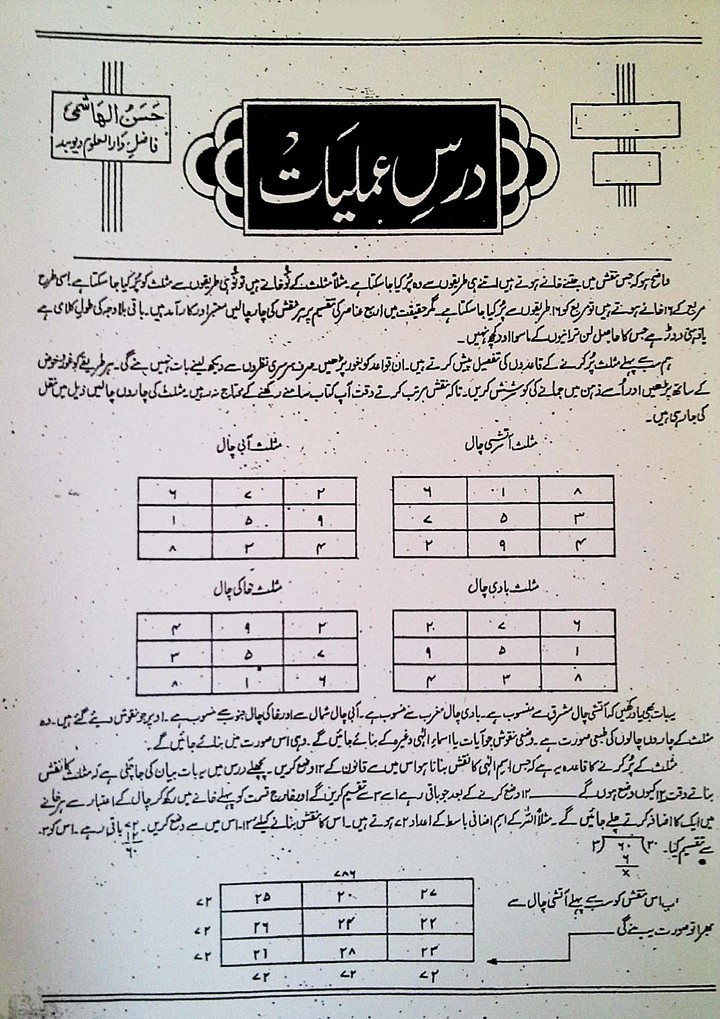 حَسَنُ الہَاشمی
فاضلِ دَارالعلوم دیوبند
درسِ عملیات
واضح ہو کہ جس نقش میں جتنے خانے ہوتے ہیں اتنے ہی طریقوں سے وہ پُر کیا جا سکتا ہے۔ مثلاً مثلث کے نو خانے ہیں تو نو ہی طریقوں سے مثلث کو پُر کیا جا سکتا ہے۔ اسی طرح
مربع کے ۱۶ خانے ہوتے ہیں تو مربع کو ۱۶ طریقوں سے پُر کیا جا سکتا ہے۔ مگر حقیقت میں اربع عناصر کی تقسیم پر ہر نقش کی چار چالیں معتبر اور کارآمد ہیں۔ باقی بلاوجہ کی طول کلامی ہے
یا ذہنی دوڑ ہے جس کا حاصل لن ترانیوں کے ماسوا اور کچھ نہیں۔
ہم سب سے پہلے مثلث پُر کرنے کے قاعدوں کی تفصیل پیش کرتے ہیں۔ ان قواعد کو بغور پڑھیں۔ صرف سرسری نظروں سے دیکھ لینے سے بات نہیں بنے گی۔ ہر طریقے کو غور و خوض
کے ساتھ پڑھیں اور اُسے ذہن میں جمانے کی کوشش کریں۔ تاکہ نقش مرتب کرتے وقت آپ کتاب سامنے رکھنے کے محتاج نہ رہیں۔ مثلث کی چاروں چالیں ذیل میں نقل
کی جا رہی ہیں۔
مثلث آتشی چال
۶ ۱ ۸
۷ ۵ ۳
۲ ۹ ۴
مثلث آبی چال
۶ ۷ ۲
۱ ۵ ۹
۸ ۳ ۴
مثلث بادی چال
۲ ۷ ۶
۹ ۵ ۱
۴ ۳ ۸
مثلث خاکی چال
۴ ۹ ۲
۳ ۵ ۷
۸ ۱ ۶
یہ بات بھی یاد رکھیں کہ آتشی چال مشرق سے منسوب ہے۔ بادی چال مغرب سے منسوب ہے۔ آبی چال شمال سے اور خاکی چال جنوب سے منسوب ہے۔ اوپر جو نقوش دیئے گئے ہیں۔ وہ
مثلث کے چاروں چالوں کی طبعی صورت ہے۔ وضعی نقوش جو آیات یا اسماءِ الٰہی وغیرہ کے بنائے جائیں گے۔ وہ بھی اسی صورت میں بنائے جائیں گے۔
مثلث کے پُر کرنے کا قاعدہ یہ ہے کہ جس اسمِ الٰہی کا نقش بنانا ہو اس میں سے قانون کے ۱۲ وضع کریں۔ پچھلے درس میں یہ بات بیان کی جا چکی ہے کہ مثلث کا نقش
بناتے وقت ۱۲ کیوں وضع ہوں گے ۱۲ وضع کرنے کے بعد جو باقی رہے اسے ۳ سے تقسیم کریں گے اور خارج قسمت کو پہلے خانے میں رکھ کر چال کے اعتبار سے ہر خانے
میں ایک کا اضافہ کرتے چلے جائیں گے۔ مثلاً اللہ کے اسم اضافی باسط کے اعداد ۷۲ ہوتے ہیں۔ اس کا نقش بنانے کیلئے ۱۲۔ اس میں سے وضع کریں۔ ۷۲ ۱۲ ۶۰ باقی رہے۔ اس کو ۳۔
سے تقسیم کیا۔ ۳) ۶۰ (۲۰ ۶ x
۷۸۶
اب اس نقش کو سب سے پہلے آتشی چال سے
بھرا تو صورت یہ بنے گی
۷۲ ۲۵ ۲۰ ۲۷
۷۲ ۲۶ ۲۴ ۲۲
۷۲ ۲۱ ۲۸ ۲۳
۷۲ ۷۲ ۷۲